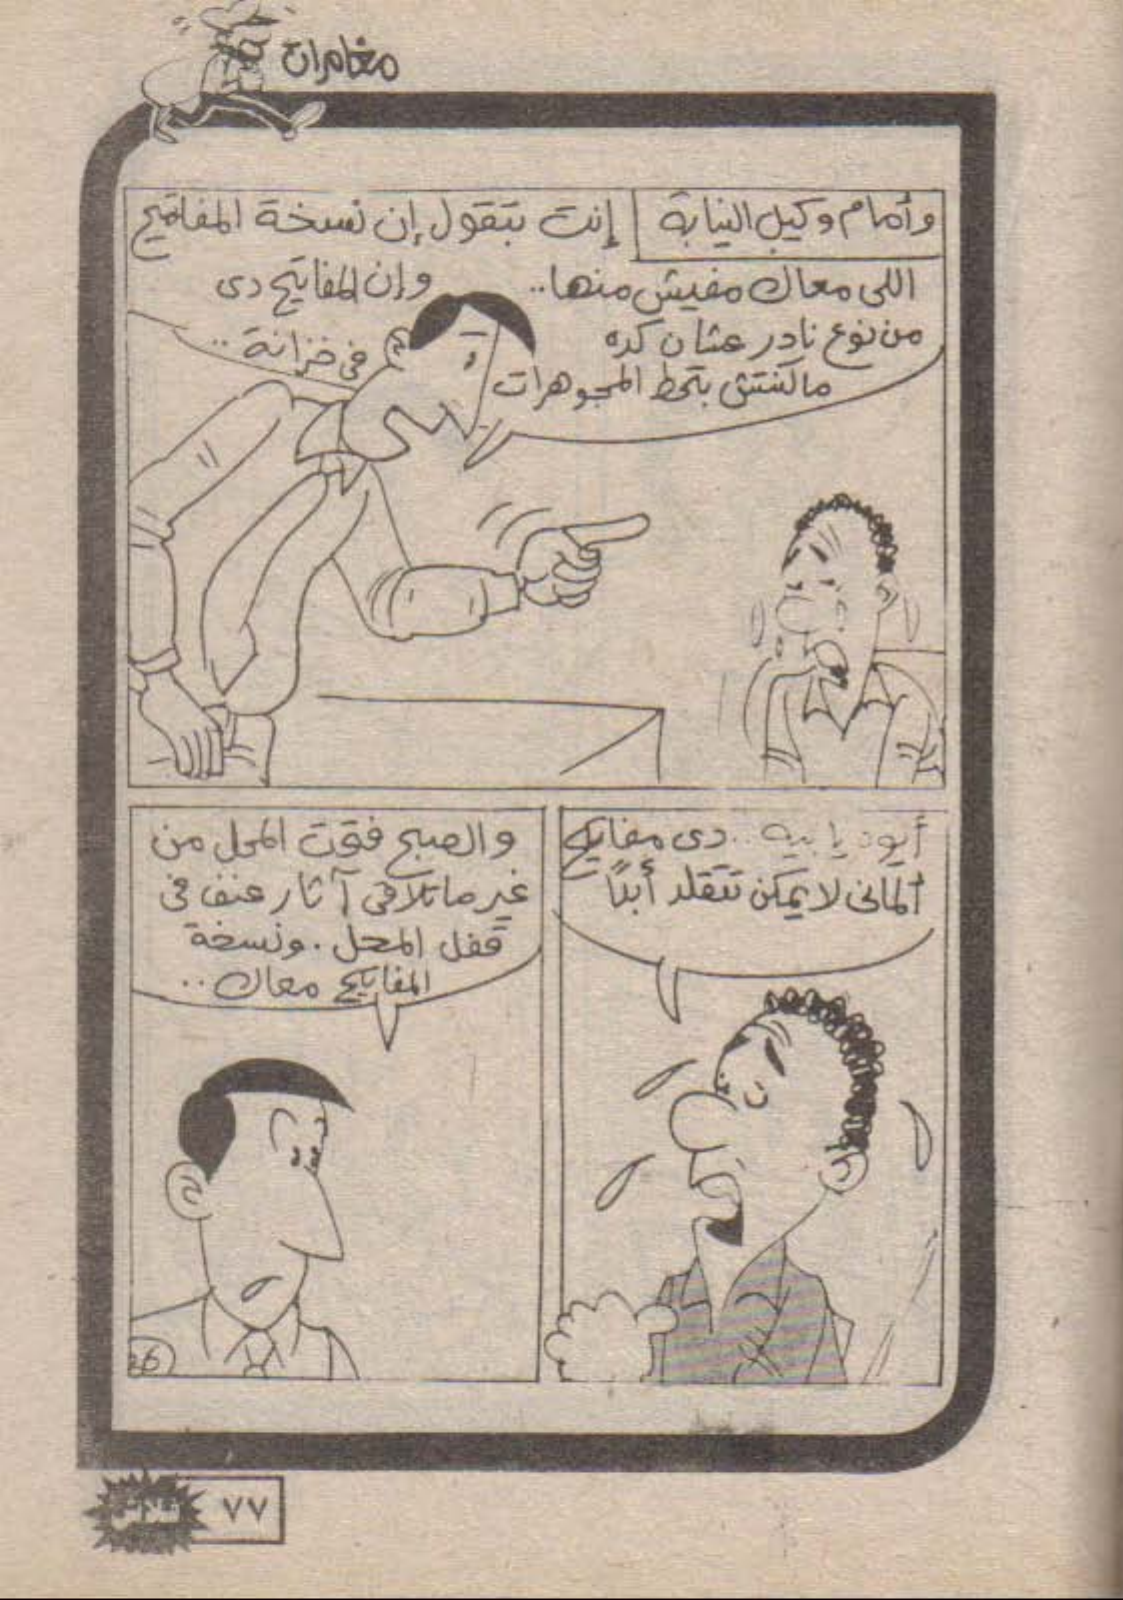 مغامرات
وأمام وكيل النيابة
إنت بتقول إن نسخة المفاتيح
اللى معاك مفيش منها..
وإن المفاتيح دى
من نوع نادر عشان كده
ماكنتش بتحط المجوهرات
فى خزانة..
أيوه يا بيه.. دى مفاتيح
ألمانى لا يمكن تتقلد أبدًا
والصبح فتحت المحل من
غير ما تلاقى آثار عنف فى
قفل المحل. ونسخة
المفاتيح معاك..
فلاش
٧٧